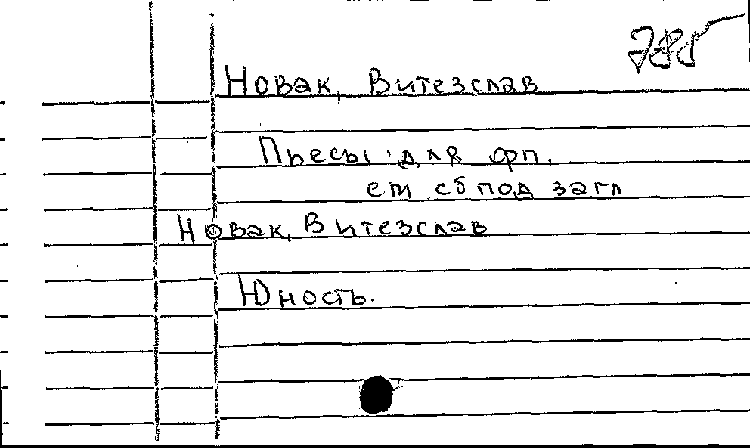 785
Новак, Витезслав
Пьесы для фп.
см сб под загл
Новак, Витезслав
Юность.